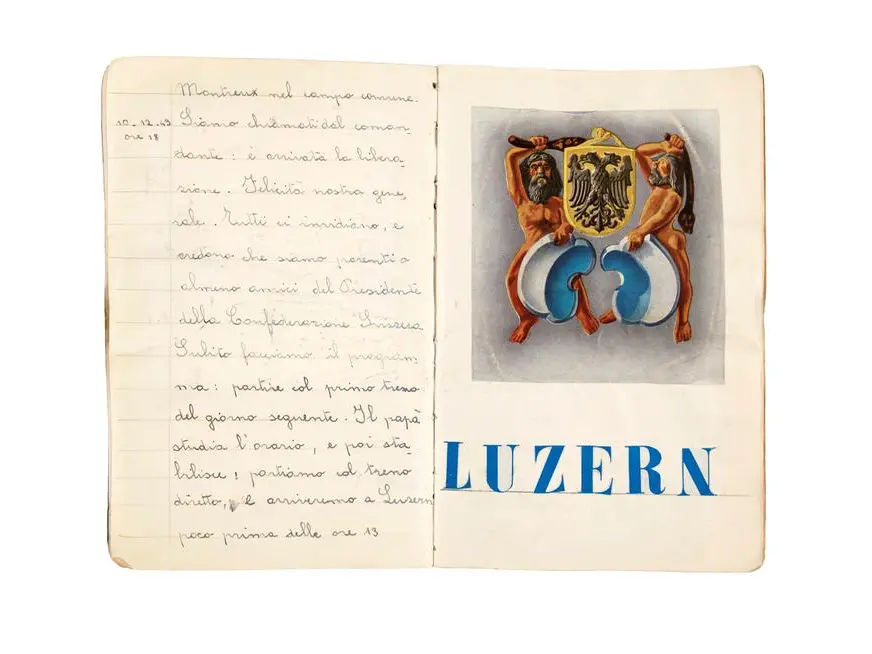 Montreux nel campo comune.
10-12-43
ore 18
Siamo chiamati dal coman-
dante: è arrivata la libera-
zione. Felicità nostra gene-
rale. Tutti ci invidiano, e
credono che siamo parenti o
almeno amici del Presidente
della Confederazione Svizzera
Subito facciamo il program-
ma: partire col primo treno
del giorno seguente. Il papà
studia l'orario, e poi sta-
bilisce: partiamo col treno
diretto, e arriveremo a Luzern
poco prima delle ore 13
LUZERN